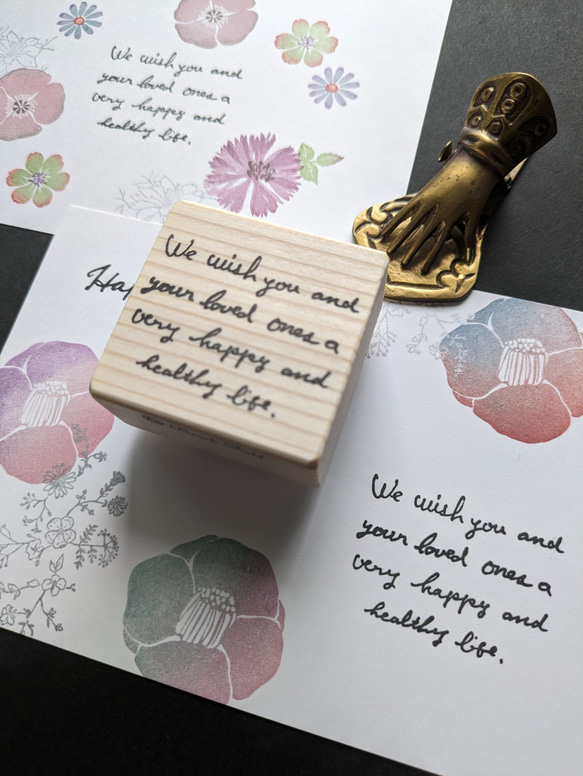 We wish you and
your loved ones a
very happy and
healthy life.
We wish you and
your loved ones a
very happy and
healthy life.
We wish you and
your loved ones a
very happy and
healthy life.